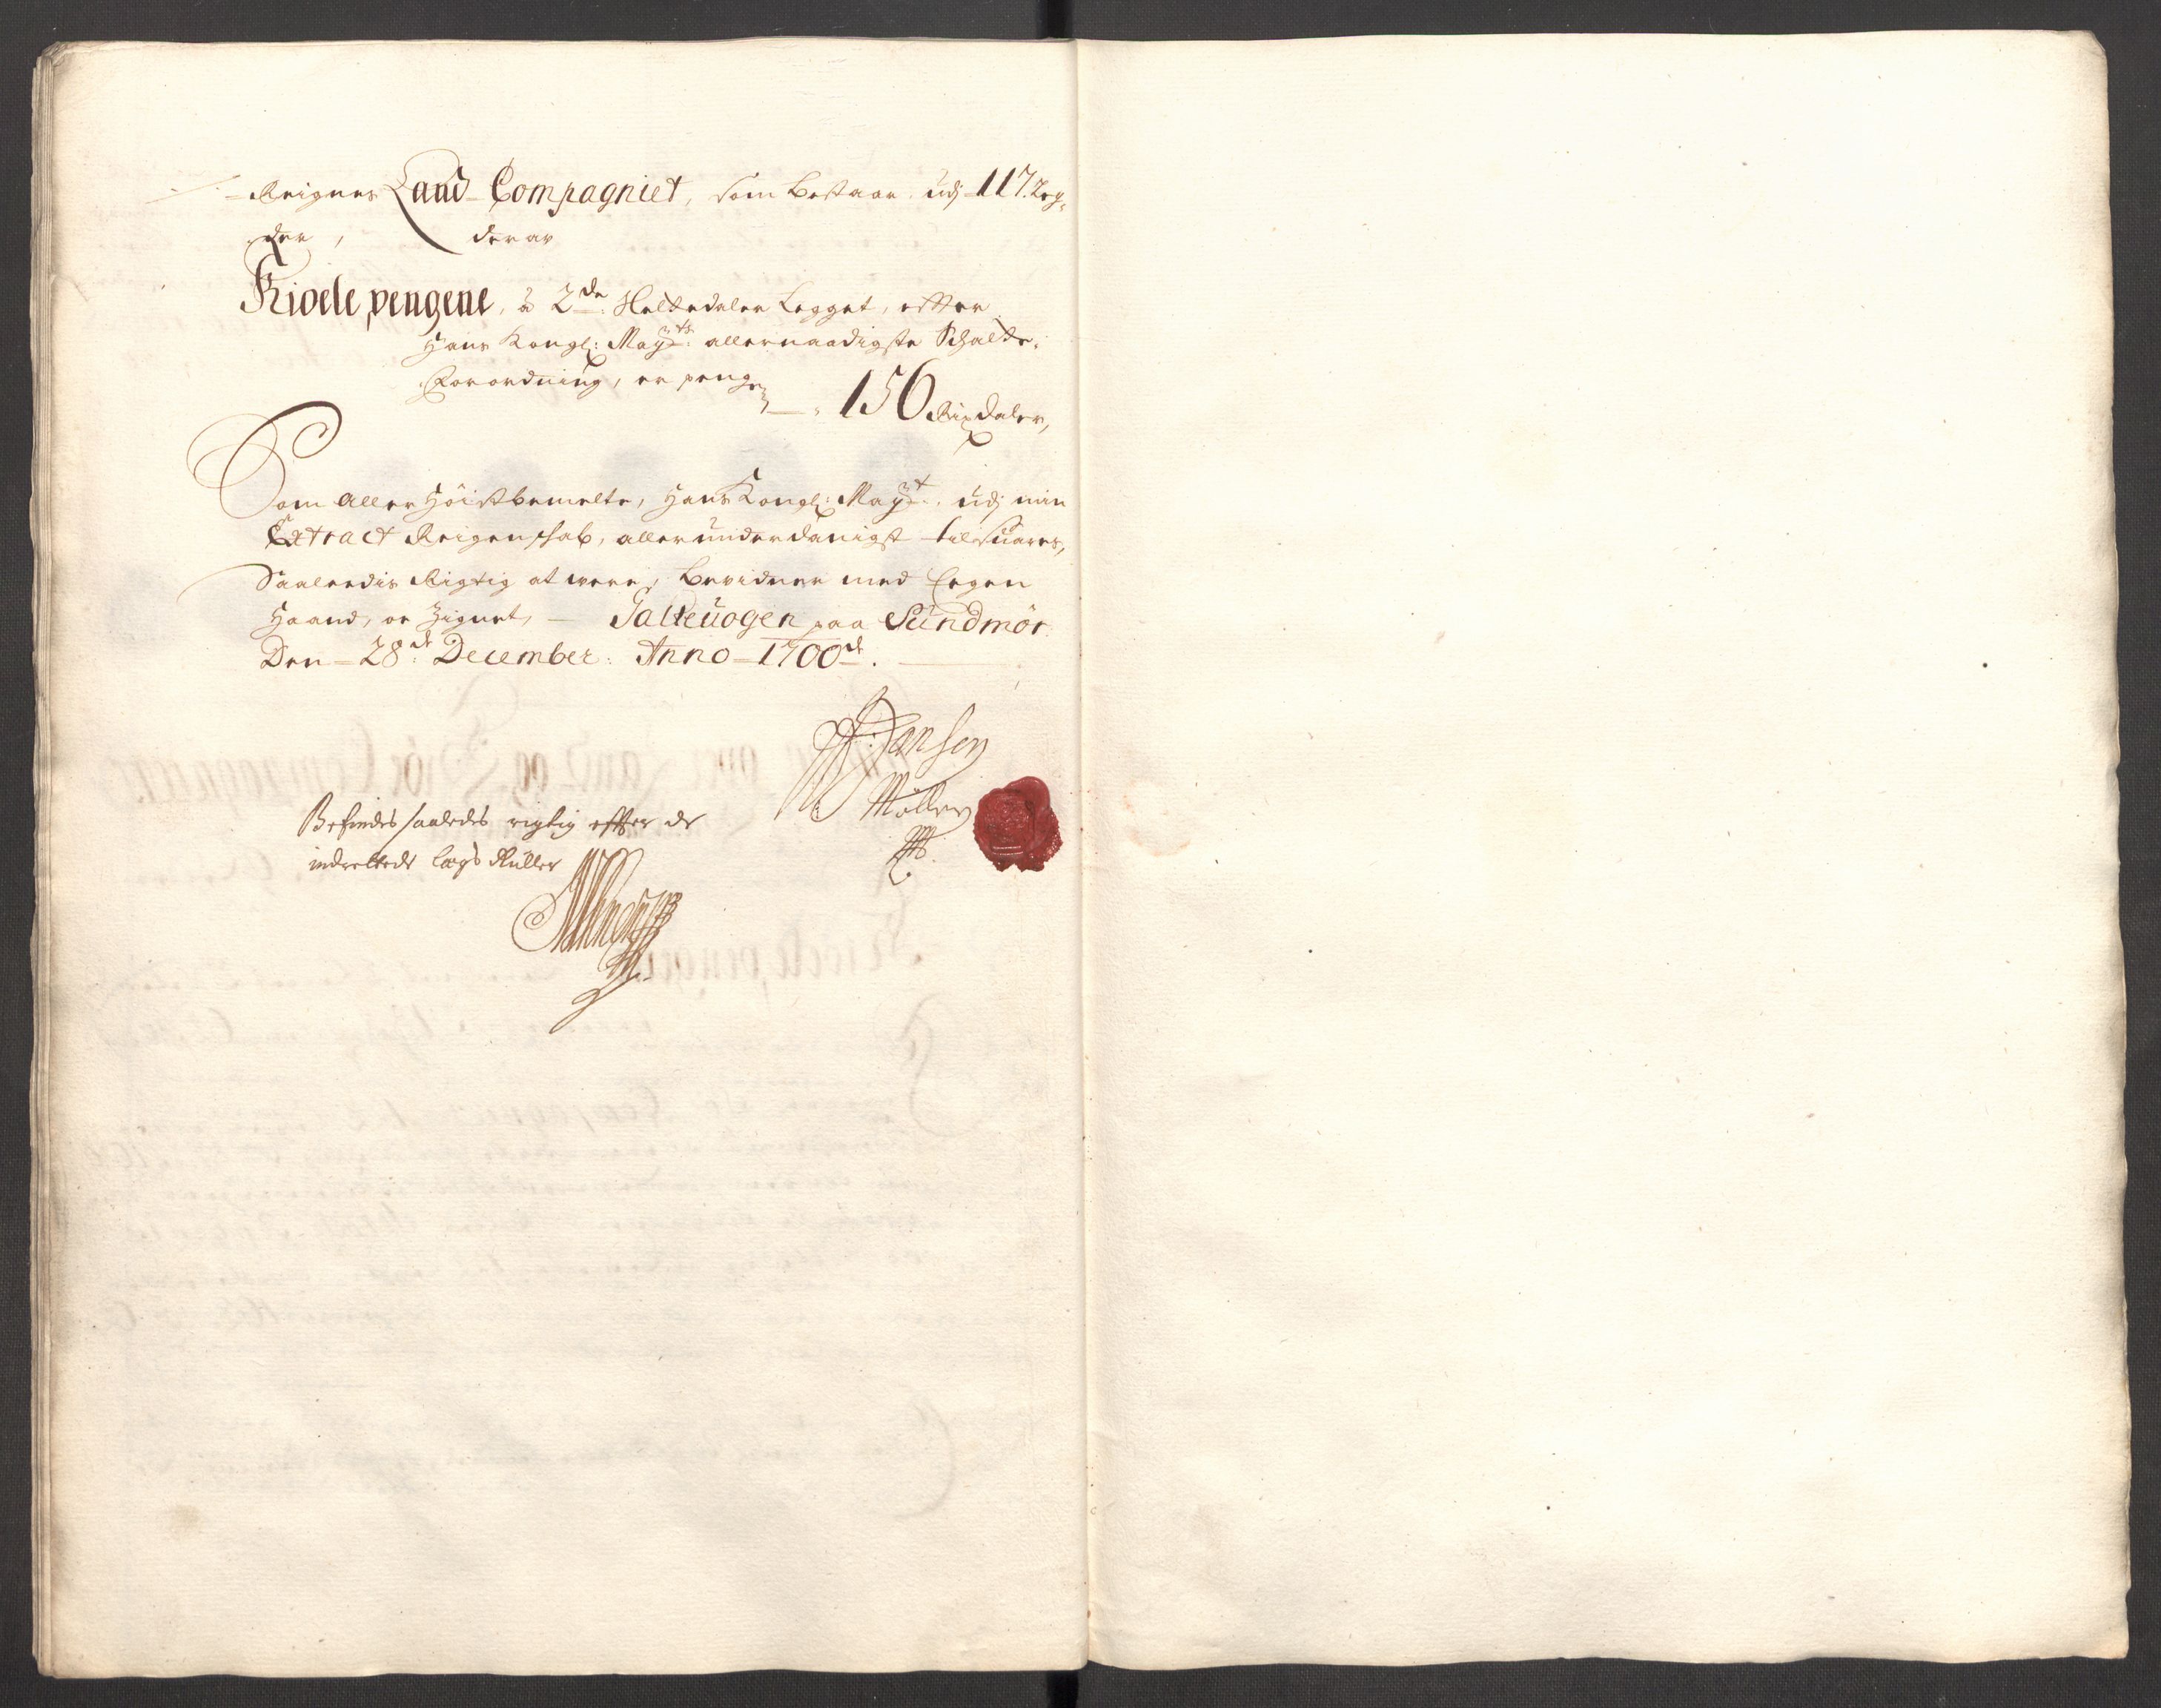 - Reignes Land-Compagniet, som bestaar udj 117. Leg-
der, deraf
Kiole pengene, a 2de Slettedaler Legget, effter
Hans Kongl: Mayts: allernaadigste Schatte-
Forordning, er penge — 156 Rixdaler,
Som aller Höistbemelte, Hans Kongl: Mayt. udj min
Extract Reigenschab, allerunderdanigst tilsuares,
Saaleedis Rigtig at were, Bevidner med Eegen
Haand, oc Zignet, — Saltevogen paa Sundmör
Den - 28de December: Anno - 1700de.
Jansen
Müller
Befindes saaledes rigtig effter de
indrettede Lægs Ruller